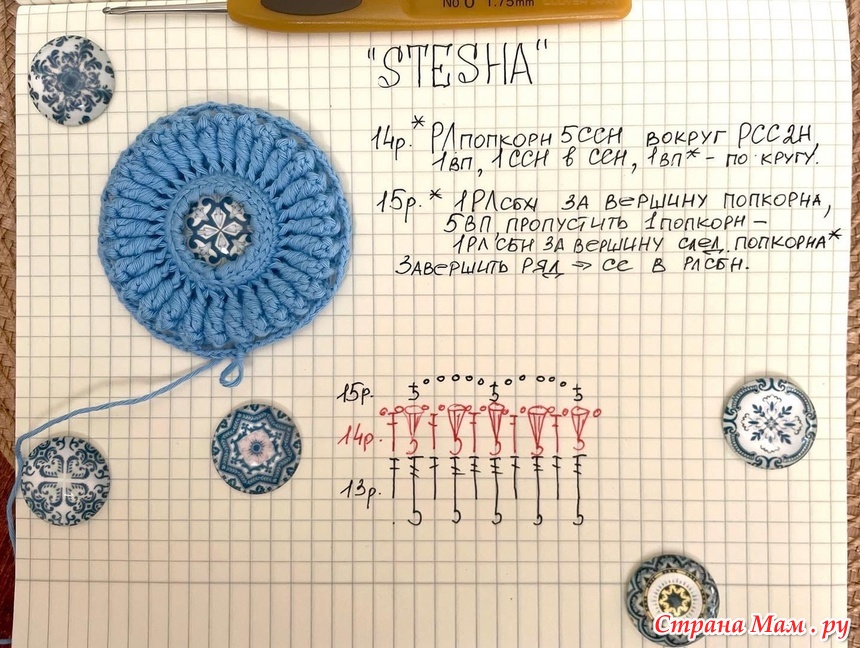 No 0 1.75mm
"STESHA"
14р. * РЛПОПКОРН 5ССН ВОКРУГ РСС2Н,
1ВП, 1ССН В ССН, 1ВП* - ПО КРУГУ.
15р. * 1РЛСБН ЗА ВЕРШИНУ ПОПКОРНА,
5ВП, ПРОПУСТИТЬ 1ПОПКОРН -
1РЛСБН ЗА ВЕРШИНУ СЛЕД. ПОПКОРНА*
ЗАВЕРШИТЬ РЯД => СС В РЛСБН.
15р.
14р.
13р.
Страна Мам.ру